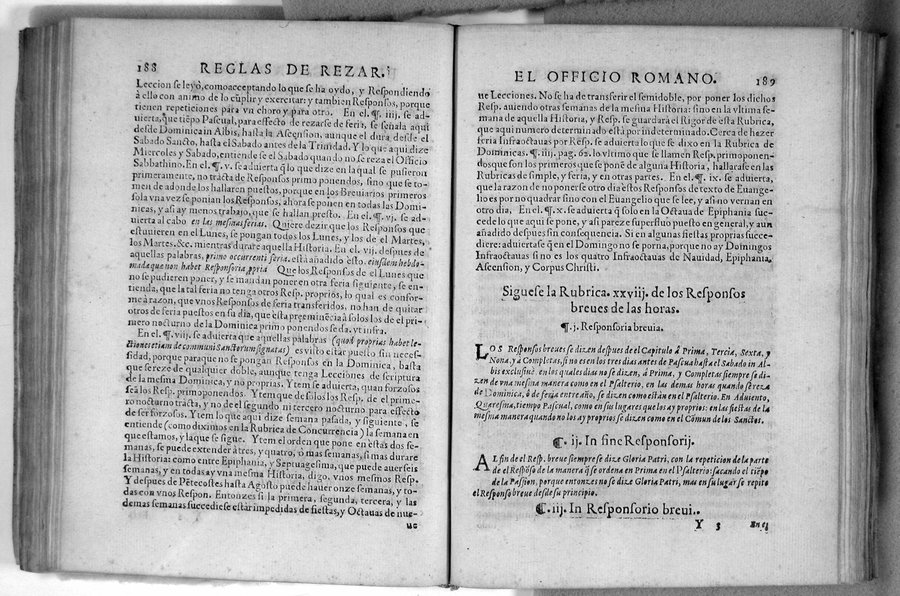 188 REGLAS DE REZAR.
Leccion se leyò, como aceptando lo que se ha oydo, y Respondiendo
à ello con animo de lo cũplir y exercitar: y tambien Responsos, porque
tienen repeticiones para vn choro y para otro. En el. ¶. iiij. se ad-
uierta, que tiẽpo Pascual, para effecto de rezarse de feria, se señala aqui
desde Dominica in Albis, hasta la Ascension, aunque el dura desde el
Sabado Sancto, hasta el Sabado antes de la Trinidad. Y lo que aqui dize
Miercoles y Sabado, entiende se el Sabado quando no se reza el Officio
Sabbathino. En el. ¶. v. se aduierta q̃ lo que dize en la qual se pusieron
primeramente, no tràcta de Responsos primo ponendos, sino que se to-
men de adonde los hallaren puestos, porque en los Breuiarios primeros
sola vna vez se ponian los Responsos, ahora se ponen en todas las Domi-
nicas, y assi ay menos trabajo, que se hallan presto. En el. ¶. vj. se ad-
uierta al cabo en las mesmas ferias. Quiere dezir que los Responsos que
estuuieren en el Lunes, se pongan todos los Lunes, y los de el Martes,
los Martes. &c. mientras durare aquella Historia. En el. vij. despues de
aquellas palabras, primo occurrenti feria. està añadido esto. eiusdem hebdo-
madæ quæ non habet Responsoria ꝓpria Que los Responsos de el Lunes que
no se pudieren poner, y se mandan poner en otra feria siguiente, se en-
tienda, que la tal feria no tenga otros Resp. proprios, lo qual es confor-
me à razon, que vnos Responsos de feria transferidos, no han de quitar
otros de feria puestos en su dia, que esta preeminẽcia à solos los de el pri-
mero nocturno de la Dominica primo ponendos se da. vt infra.
En el. ¶. viij. se aduierta que aquellas palabras (quod proprias habet le-
ctiones etiam de communi Sanctorum signatas) es visto estar puesto sin neces-
sidad, porque para que no se pongan Responsos en la Dominica, basta
que se reze de qualquier doble, aunque tenga Lecciones de scriptura
de la mesma Dominica, y no proprias. Ytem se aduierta, quan forzosos
seã los Resp. primo ponendos. Ytem que de solos los Resp. de el prime-
ro nocturno tràcta, y no de el segundo ni tercero nocturno para effecto
de ser forzosos. Ytem lo que aqui dize semana pasada, y siguiente, se
entiende (como diximos en la Rubrica de Concurrencia) la semana en
que estamos, y la que se sigue. Ytem el orden que pone en estas dos se-
manas, se puede extender à tres, y quatro, ò mas semanas, si mas durare
la Historia como entre Epiphania, y Septuagesima, que puede auer seis
semanas, y en todas ay vna mesma Historia, digo, vnos mesmos Resp.
Y despues de Pẽtecostes hasta Agosto puede hauer onze semanas, y to-
das con vnos Respon. Entonzes si la primera, segunda, tercera, y las
demas semanas succediese estar impedidas de fiestas, y Octauas de nue-
ue
EL OFFICIO ROMANO. 189
ue Lecciones. No se ha de transferir el semidoble, por poner los dichos
Resp. auiendo otras semanas de la mesma Historia: sino en la vltima se-
mana de aquella Historia, y Resp. se guardarà el Rigor de esta Rubrica,
que aqui numero determinado està por indeterminado. Cerca de hazer
feria Infraoctauas por Resp. se aduierta lo que se dixo en la Rubrica de
Dominicas. ¶. iij. pag. 62. lo vltimo que se llamẽ Resp. primo ponen-
dos que son los primeros, que se ponẽ de alguna Historia, hallarase en las
Rubricas de simple, y feria, y en otras partes. En el. ¶. ix. se aduierta,
que la razon de no ponerse otro dia estos Responsos de texto de Euange-
lio es por no quadrar sino con el Euangelio que se lee, y assi no vernan en
otro dia, En el. ¶. x. se aduierta q̃ solo en la Octaua de Epiphania suc-
cede lo que aqui se pone, y assi parece superfluo puesto en general, y aun
añadido despues sin consequencia. Si en algunas fiestas proprias succe-
diere: aduiertase q̃ en el Domingo no se porna, porque no ay Domingos
Infraoctauas sino es los quatro Infraoctauas de Nauidad, Epiphania,
Ascension, y Corpus Christi.
Siguese la Rubrica. xxviij. de los Responsos
breues de las horas.
¶. j. Responsoria breuia.
LOS Responsos breues se dizen despues de el Capitulo à Prima, Tercia, Sexta, y
Nona, y à Completas, si no es en los tres dias antes de Pascua hasta el Sabado in Al-
bis exclusiuè. en los quales dias no se dizen, à Prima, y Completas siempre se di-
zen de vna mesma manera como en el Psalterio, en las demas horas quando se reza
de Dominica, ò de feria entre año, se dizen como estàn en el Psalterio. En Aduiento,
Quaresma, tiempo Pascual, como en sus lugares que los ay proprios: en las fiestas de la
mesma manera quando no los ay proprios se dizen como en el Comun de los Sanctos.
¶. ij. In fine Responsorij.
AL fin de el Resp. breue siempre se dize Gloria Patri, con la repeticion de la parte
de el Respõso de la manera q̃ se ordena en Prima en el Psalterio: sacando el tiẽpo
de la Passion, porque entonzes no se dize Gloria Patri, mas en su lugar se repite
el Responso breue desde su principio.
¶. iij. In Responsorio breui..
Y 3 En el